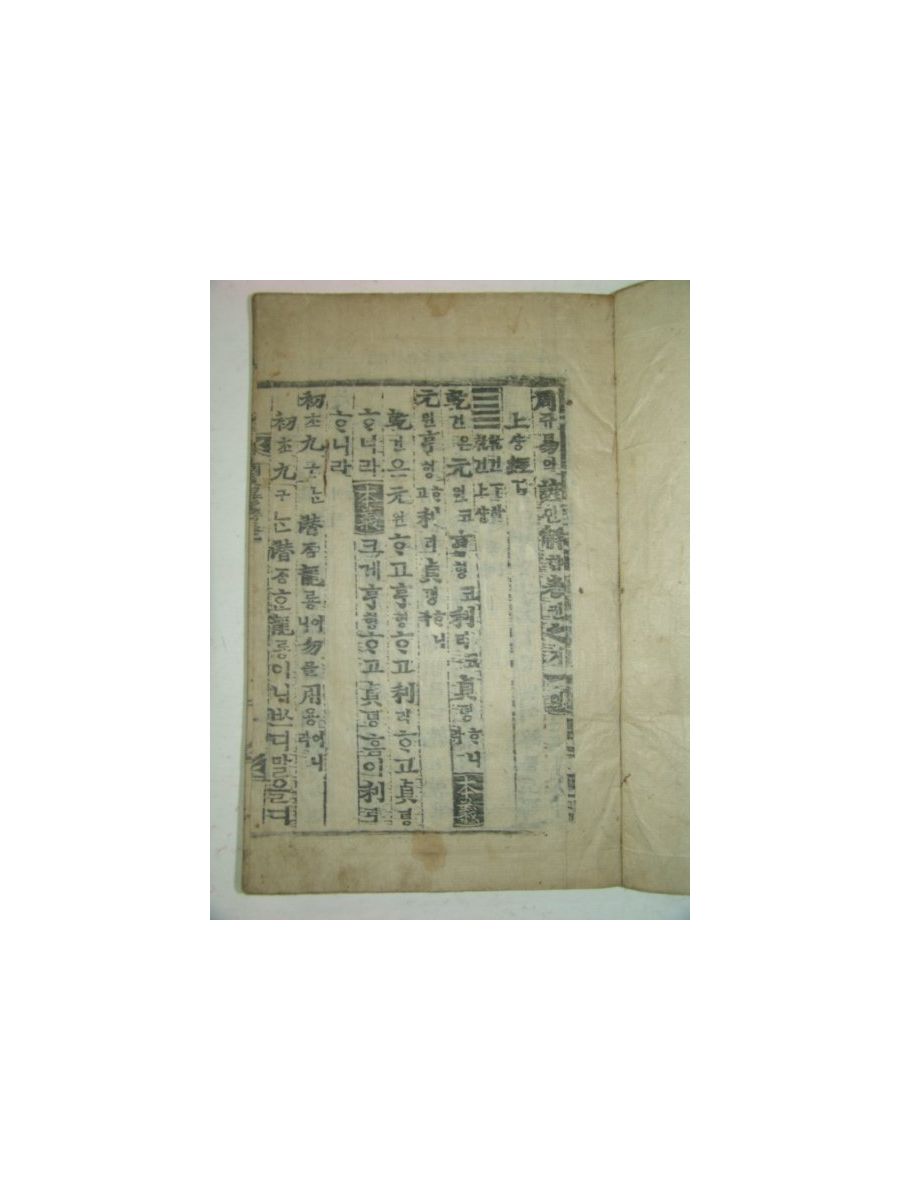 周쥬易역諺언解ᄒᆡ卷권之지一일
上샹經경
乾건下하乾건上샹
乾건은元원코亨형코利리코貞뎡ᄒᆞ니라 本義
元원亨형ᄒᆞ고利리貞뎡ᄒᆞ니라
乾건은元원ᄒᆞ고亨형ᄒᆞ고利리ᄒᆞ고貞뎡
ᄒᆞ니라 本義 크게亨형ᄒᆞ고貞뎡홈이利리
ᄒᆞ니라
初초九구ᄂᆞᆫ潛ᄌᆞᆷ龍룡이니勿믈用용이니라
初초九구ᄂᆞᆫ潛ᄌᆞᆷᄒᆞᆫ龍룡이니ᄡᅳ디말을디